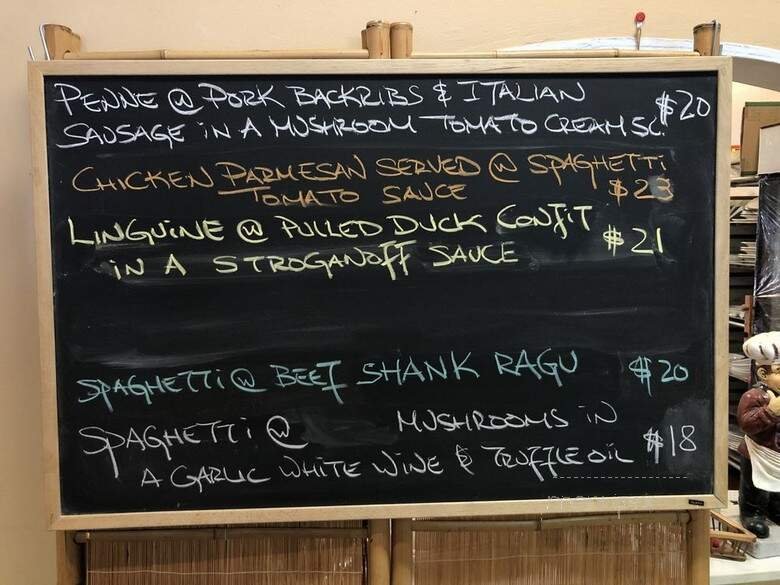 PENNE @ PORK BACKRIBS & ITALIAN
SAUSAGE IN A MUSHROOM TOMATO CREAM SC. $20
CHICKEN PARMESAN SERVED @ SPAGHETTI
TOMATO SAUCE $23
LINGUINE @ PULLED DUCK CONFIT $21
IN A STROGANOFF SAUCE
SPAGHETTI @ BEEF SHANK RAGU $20
SPAGHETTI @ MUSHROOMS IN
A GARLIC WHITE WINE & TRUFFLE OIL $18